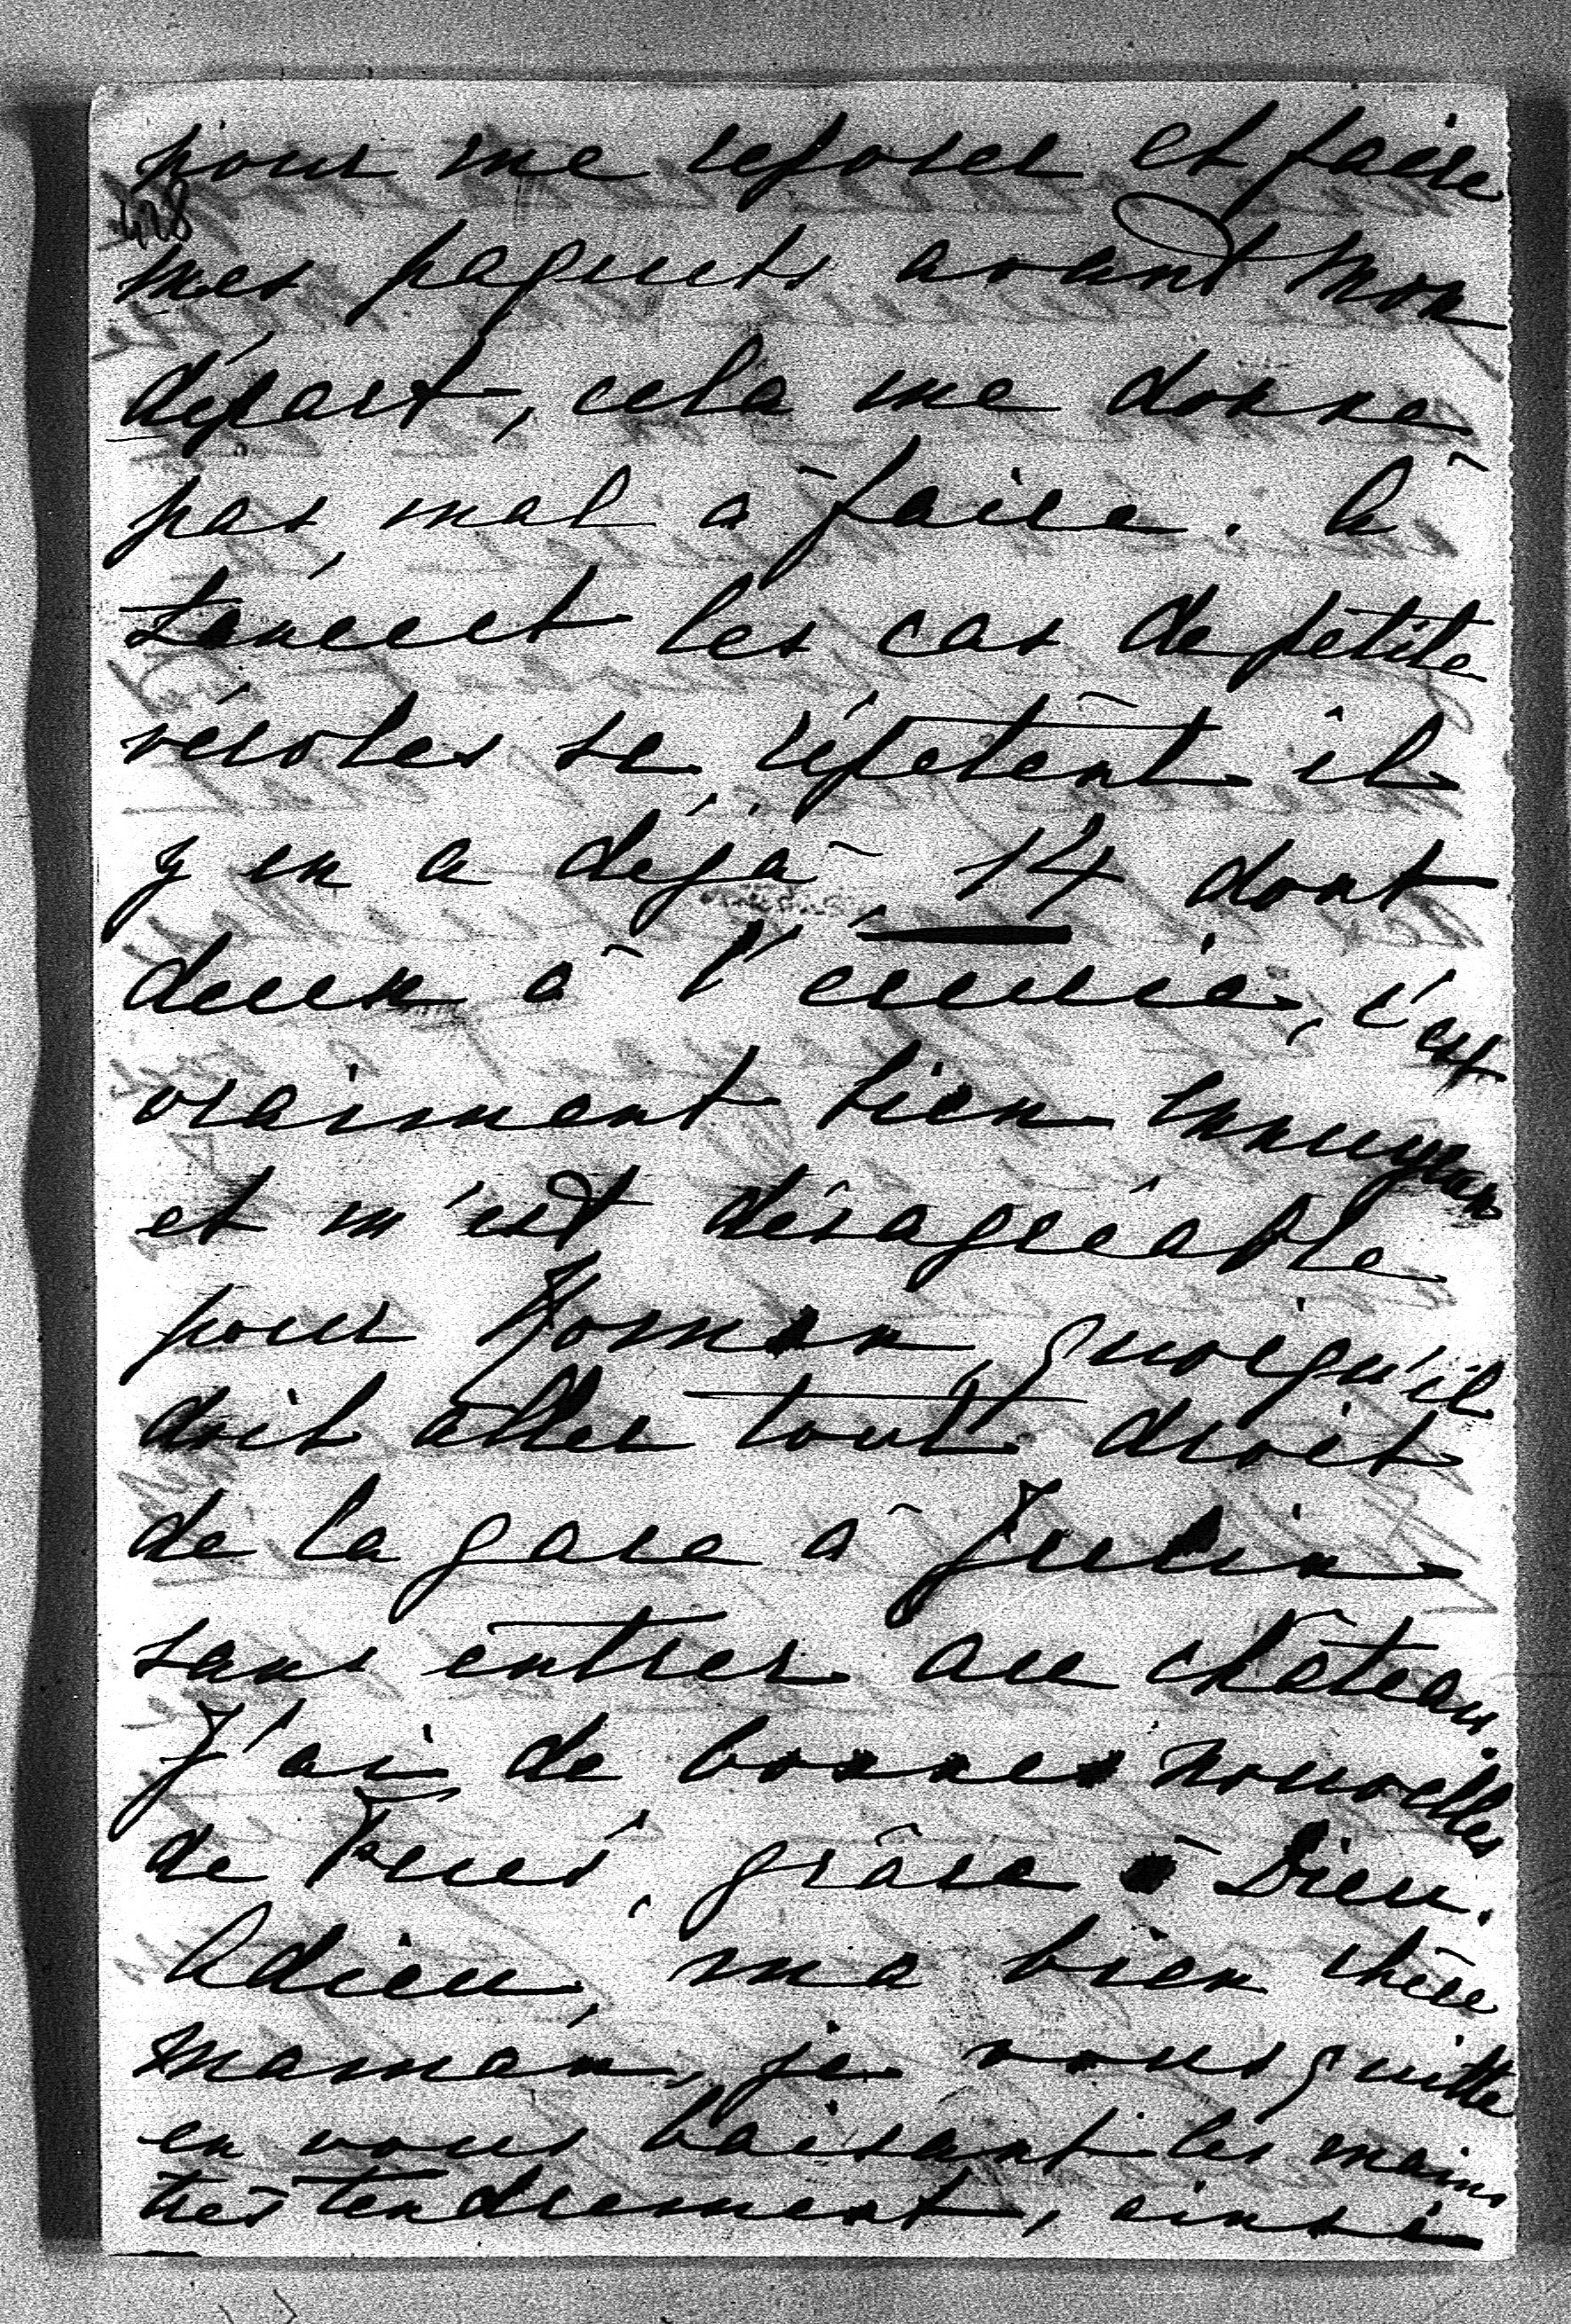 pour me reposer et faire
428
mes paquets avant mon
départ, cela me donne
pas mal à faire. à
Lancut les cas de petite
véroles se répètent il
y en a déjà 14 dont
deux à l'écurie, c'est
vraiment bien ennuyeux
et m'est désagréable
pour Roman, quoiqu'il
doit aller tout droit
de la gare à Julin
sans entrer au château
J'ai de bonnes nouvelles
de grâce à Dieu.
Adieu, ma bien chère
maman, je vous quitte
en vous baisant les mains
très tendrement, ainsi